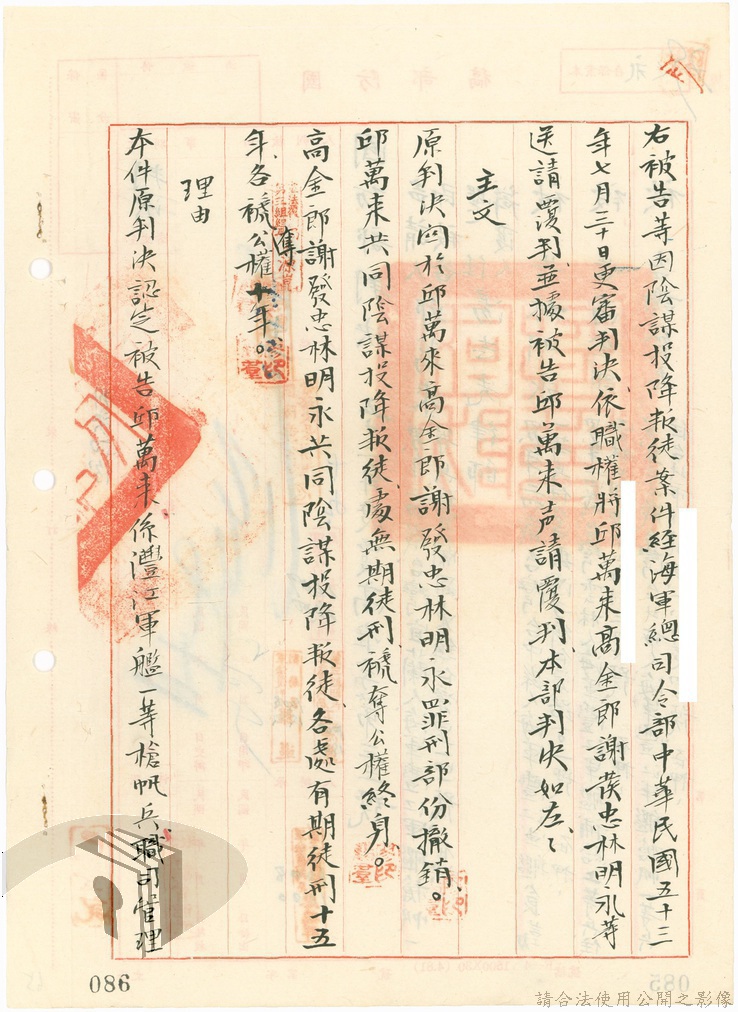 右被告等因陰謀投降叛徒案件經海軍總司令部中華民國五十三
年七月三十日更審判決依職權將邱萬來高金郎謝發忠林明永等
送請覆判並據被告邱萬來声請覆判本部判決如左
主文
原判決関於邱萬來高金郎謝發忠林明永罪刑部份撤銷。
邱萬來共同陰謀投降叛徒處無期徒刑褫奪公權終身。
高金郎謝發忠林明永共同陰謀投降叛徒各處有期徒刑十五
年各褫奪公權十年。
理由
本件原判決認定被告邱萬來係灃江軍艦一等槍帆兵職司管理
086
085
請合法使用公開之影像